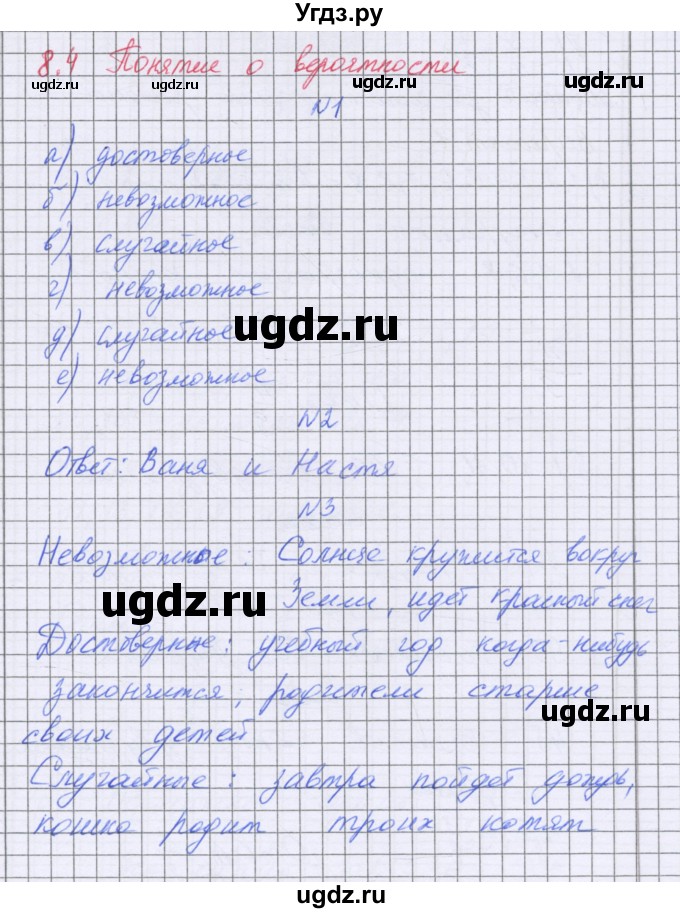 Угдз.ру
8.4 Понятие о вероятности
ugdz.ru ugdz.ru ugdz.ru
N1
а) достоверное
б) невозможное
в) случайное
г) невозможное
д) случайное
ugdz.ru
е) невозможное
N2
Ответ: Ваня и Настя
N3
Невозможное: Солнце кружится вокруг
Земли, идет красный снег
ugdz.ru
Достоверные: учебный год когда-нибудь
закончится, родители старше
ugdz.ru
своих детей
Случайные: завтра пойдет дождь,
кошка родит троих котят
ugdz.ru